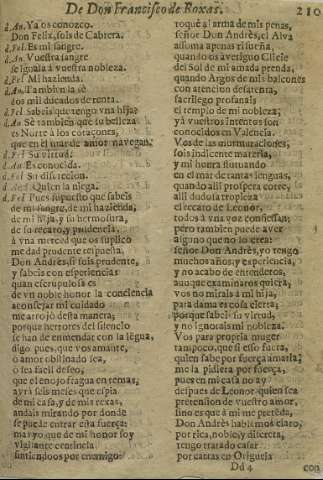 De Don Francisco de Roxas. 210
d. An. Ya os conozco.
Don Felix, sois de Cabrera.
d. Fel. Es mi sangre.
d. An. Vuestra sangre
se iguala à vuestra nobleza.
d. Fel. Mi hazienda.
d. An. Tambien sè
dos mil ducados de renta.
d. Fel. Sabeis que tengo vna hija?
d. An. Sè tambien que su belleza
es Norte à los coraçones,
que en el mar de amor navegan.
d. Fel. Su virtud.
d. An. Es conocida.
d. Fel. Su discrecion.
d. And. Quien la niega.
d. Fel. Pues supuesto que sabeis
de mi sangre, de mi hazienda,
de mi hija, y su hermosura,
de su recato, y prudencia,
à vna merced que os suplico
me dad prudente respuesta.
Don Andrès, si sois prudente,
y sabeis con esperiencias
quan escrupulosa es
de vn noble honor la conciencia
aconsejar mi cuidado
me arrojò desta manera,
porque herrores del silencio
se han de enmendar con la lẽgua,
digo pues, que vos amante,
ò amor obstinado sea,
ò sea facil deseo,
que el enojo fragua en temas,
ayrà seis meses que espia
de mi casa, y de mis rexas,
andais mirando por donde
se puede entrar esta fuerça;
mas yo, que de mi honor soy
vigilante centinela
sintiendoos por enemigo
toquè al arma de mis penas,
señor Don Andrès, el Alva
assoma apenas risueña,
quando os averiguo Clicie
del Sol de mi amada prenda,
quando Argos de mis balcones
con atencion desatenta,
sacrilego profanais
el templo de mi nobleza;
yà vuestros intentos son
conocidos en Valencia.
Vos de las murmuraciones,
sois indicente materia,
y mi honra fluctuando
en el mar de tantas lenguas,
quando alli prospera corre,
alli dudosa tropieça
el recato de Leonor.
todos à vna voz confiessan;
pero tambien puede aver
alguno que no lo crea:
señor Don Andrès, yo tengo
muchos años, y experiencia,
y no acabo de entenderos,
aunque examinaros quiera,
vos no mirais à mi hija,
para dama es cosa cierta,
porque sabeis su virtud,
y no ignorais mi nobleza.
Vos para propria muger
tampoco, que si esso fuera,
quien sabe por fuerça amarla,
me la pidiera por fuerça,
pues en mi casa no ay
despues de Leonor quien sea
pretension de vuestro amor,
sino es que à mi me pretẽda,
Don Andrès hablemos claro,
por rica, noble, y discreta,
tengo tratado casar
por cartas en Origuela
Dd 4 con